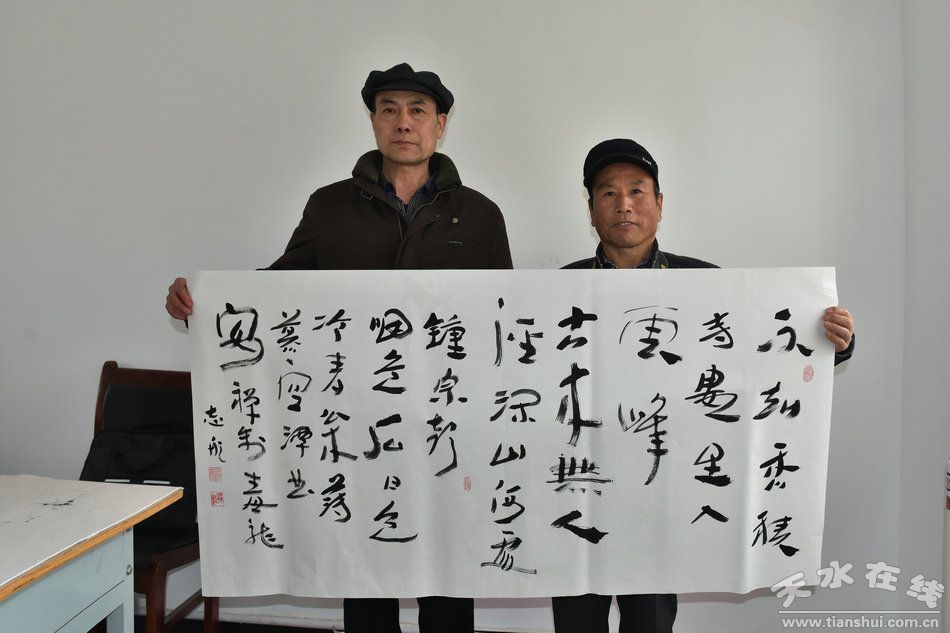 不知香積
寺數里入
雲峰
古木無人
徑深山何處
鐘泉聲
咽危石日色
冷青松薄
暮空潭曲
安禪制毒龍
志
天水在线
www.tianshui.com.cn